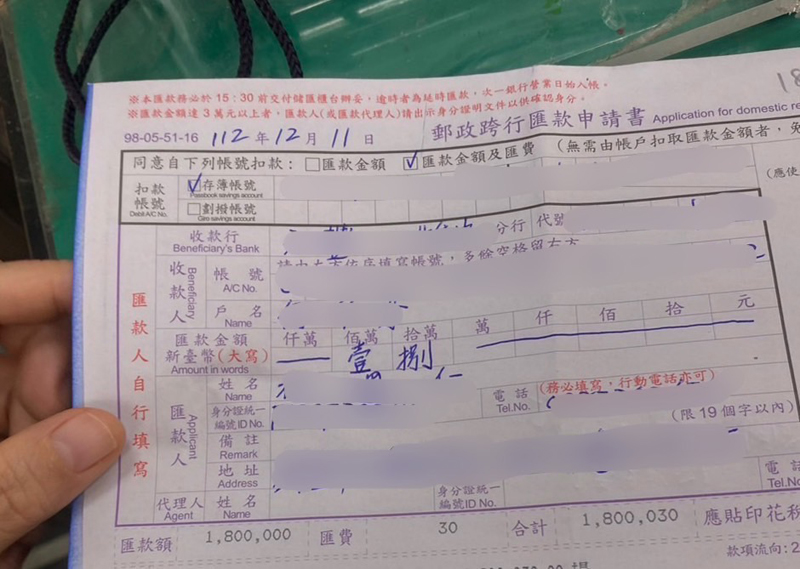 ※本匯款務必於15:30前交付儲匯櫃台辦妥，逾時者為延時匯款，次一銀行營業日始入帳。
※匯款金額達3萬元以上者，匯款人(或匯款代理人)請出示身分證明文件以供確認身分。
98-05-51-16 112年12月11日 郵政跨行匯款申請書 Application for domestic re
同意自下列帳號扣款：□匯款金額 ☑匯款金額及匯費 (無需由帳戶扣取匯款金額者，免
扣款帳號 Debit A/C No. ☑存簿帳號 Passbook savings account (應使
□劃撥帳號 Giro savings account
收款行 Beneficiary's Bank 分行 代號
收款人 Beneficiary 帳號 A/C No.
戶名 Name
匯款金額 新臺幣(大寫) Amount in words 仟萬 佰萬 拾萬 萬 仟 佰 拾 元
壹 捌
匯款人自行填寫
匯款人 Applicant 姓名 Name 電話 Tel.No. (務必填寫，行動電話亦可)
身分證統一編號ID No.
備註 Remark (限19個字以內)
地址 Address 電話 Tel.No
代理人 Agent 姓名 Name 身分證統一編號ID No.
匯款額 1,800,000 匯費 30 合計 1,800,030 應貼印花稅
款項流向:2